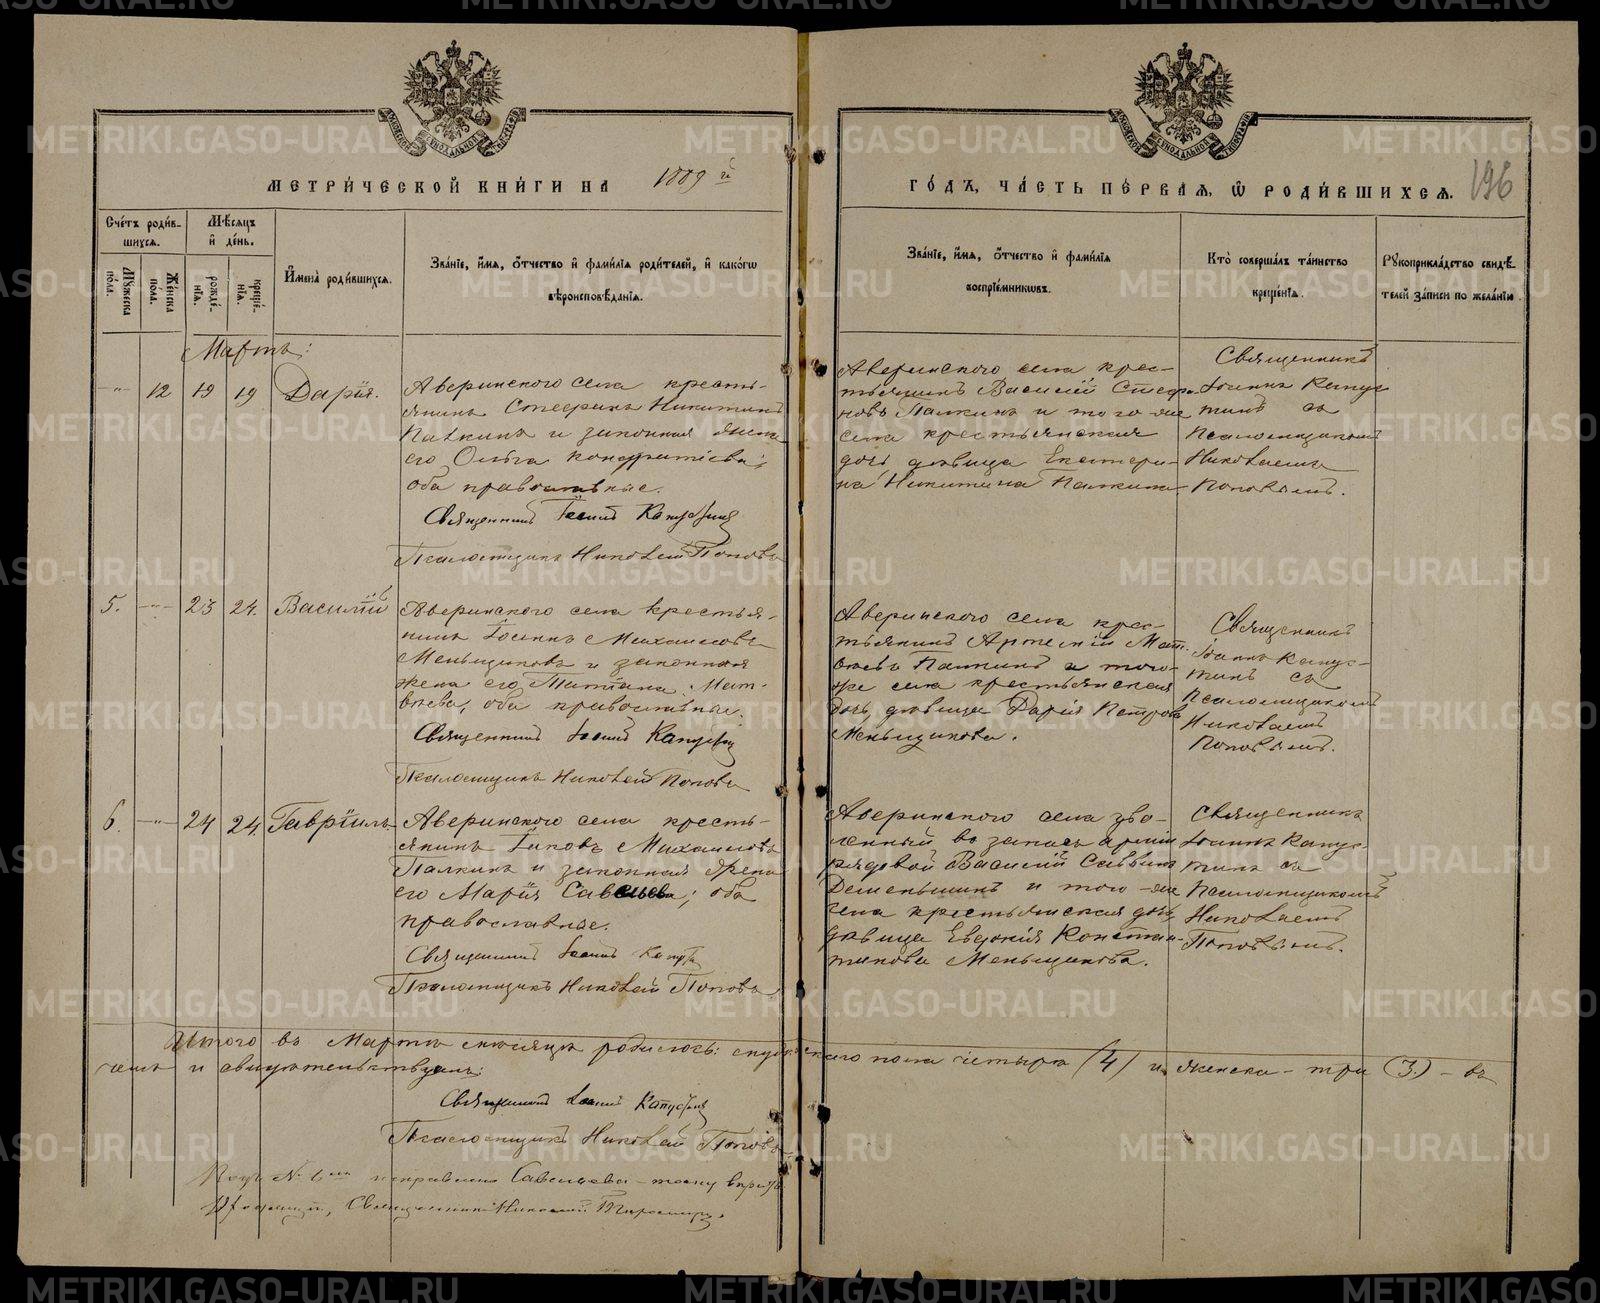 МЕТРИ́ЧЕСКОЙ КНИ́ГИ НА 1889 й
ГО́ДЪ, ЧА́СТЬ ПЕ́РВАЯ, Ѽ РОДИ́ВШИХСЯ.
196
Сче́тъ роди́в-
шихся.
Мѣ́сяцъ
и де́нь.
Му́жеска
по́ла.
Же́нска
по́ла.
рожде́-
нія.
креще́-
нія.
Имена̀ роди́вшихся.
Зва́ніе, и́мя, о́тчество и фами́лія роди́телей, и како́гѡ
вѣроисповѣ́данія.
Зва́ніе, и́мя, о́тчество и фами́лія
воспріе́мниковъ.
Кто̀ соверша́лъ та́инство
креще́нія.
Рукоприкла́дство свидѣ́-
телей за́писи по жела́нію.
Мартъ:
-"- 12 19 19 Дарія.
Аверинскаго села кресть-
янинъ Стефанъ Никитинъ
Палкинъ и законная жена
его Ольга
оба православные.
Священникъ Іоаннъ Капустинъ
Псаломщикъ Николай Поповъ
Аверинскаго села крес-
тьянинъ Василій Стефа-
новъ Палкинъ и того-же
села крестьянская
дочь дѣвица Екатери-
на Никитина Палкина
Священникъ
Іоаннъ Капус-
тинъ съ
Псаломщикомъ
Николаемъ
Поповымъ.
5. -"- 23 24. Василій
Аверинскаго села крестья-
нинъ Іоаннъ Михаиловъ
Меньщиковъ и законная
жена его Татіана Мат-
вѣева, оба православные.
Священникъ Іоаннъ Капустинъ
Псаломщикъ Николай Поповъ
Аверинскаго села крес-
тьянинъ Артемій Мат-
вѣевъ Палкинъ и того-
же села крестьянская
дочь, дѣвица Дарія Петрова
Меньщикова.
Священникъ
Іоаннъ Капус-
тинъ съ
Псаломщикомъ
Николаемъ
Поповымъ.
6. -"- 24 24. Гавріилъ
Аверинскаго села кресть-
янинъ Іаковъ Михаиловъ
Палкинъ и законная жена
его Марія Савельева; оба
православные.
Священникъ Іоаннъ Капустинъ
Псаломщикъ Николай Поповъ
Аверинскаго села уво-
ленный въ запасъ арміи
рядовой Василій Саввинъ
Деменьшинъ и того-же
села крестьянская дочь
дѣвица Евдокія Констан-
тинова Меньщикова.
Священникъ
Іоаннъ Капус-
тинъ съ
Псаломщикомъ
Николаемъ
Поповымъ.
Итого въ Мартѣ мѣсяцѣ родилось: мужескаго пола четыре (4) и женска - три (3) - въ
чемъ и свидѣтельствуемъ:
Священникъ Іоаннъ Капустинъ
Псаломщикъ Николай Поповъ
Савельева
Священникъ Николай
METRIKI.GASO-URAL.RU